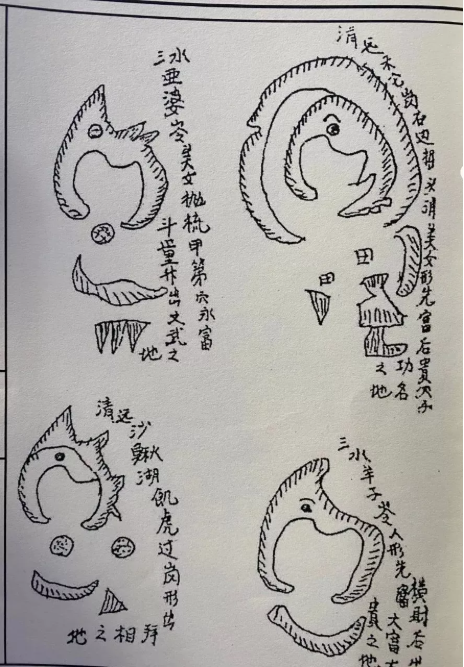 清远岗右边头消美女形先富后貴
功名
之地
田
田
三水亚婆岺美女抛梳甲第穴永富
斗量升出文武之
地
三水羊子岺人形先富
橫財后出
大富大
貴之地
清远沙鳅湖飢虎过岗形出
拜相之地